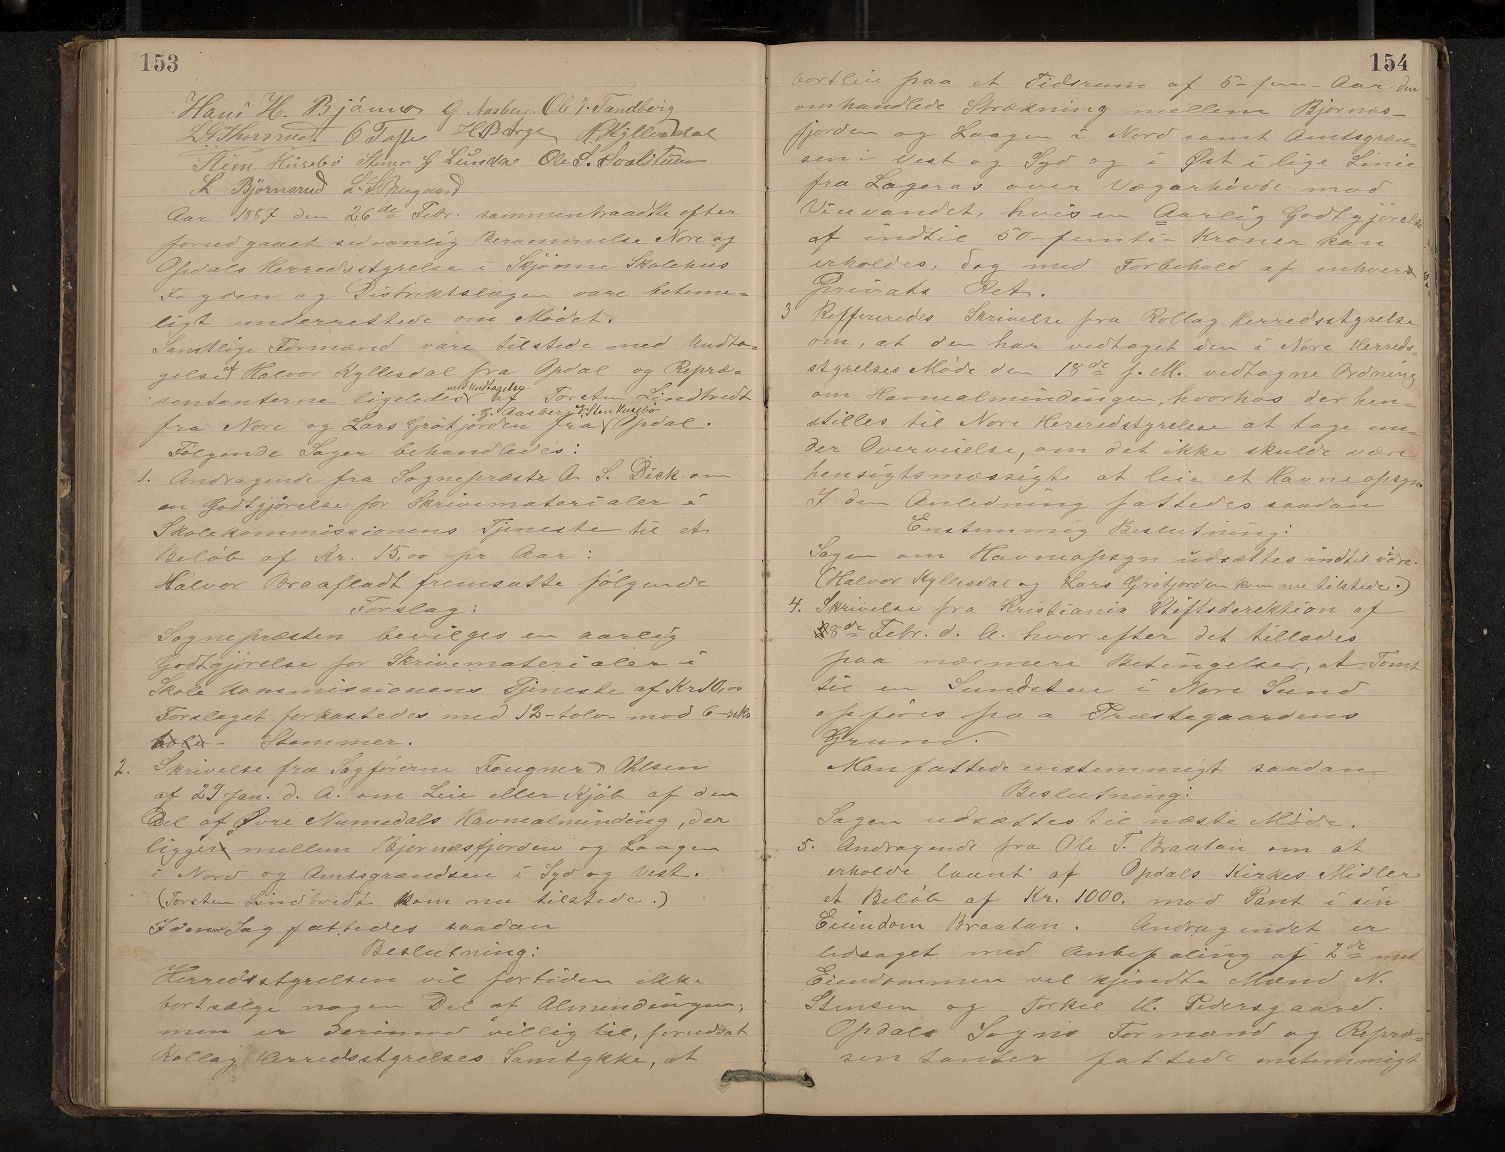 153
Hans H. Bjånnes G. Aasberg Ole T. Tandberg
O Tafte H Borge H. Kyllesdal
Steen Husebö Stener G Lunda Ole S.
L Björnerud L. S.
Aar 1887 den 26de Febr. sammentraadte efter
forudgaaet sedvanlig Berammelse Nore og
Opdals Herredsstyrelse i Skjönne Skolehus
Fogden og Distriktslægen vare betime-
ligt underrettede om Mödet.
Samtlige Formænd vare tilstede med Undta-
gelse af Halvor Kyllesdal fra Opdal og Repræ-
sentanterne ligeledes med Undtagelse af Torsten Lindtvedt
fra Nore og Lars Grötjorden G. Aasberg & Sten Husebö fra Opdal.
Fölgende Sager behandledes:
1. Andragende fra Sognepræst A. S. Dick om
en Godtgjörelse for Skrivematerialer i
Skolekommissionens Tjeneste til et
Belöb af Kr. 15,00 pr Aar:
Halvor Braafladt fremsatte fölgende
Forslag:
Sognepræsten bevilges en aarlig
Godtgjörelse for Skrivematerialer i
Skole Kommissionens Tjeneste af Kr 10,00
Forslaget forkastedes med 12-tolv mod 6-seks
Stemmer.
2. Skrivelse fra Sagförerne Fougner & Ohlsen
af 29 Jan. d. A. om Leie eller Kjöb af den
Del af Övre Numedals Havnealminding, der
ligger mellem Bjornæsfjorden og Laagen
i Nord og Amtsgrændsen i Syd og Vest.
(Torsten Lindtvedt kom nu tilstede.)
I denne Sag fattedes saadan
Beslutning:
Herredsstyrelsen vil fortiden ikke
bortsælge nogen Del af Almindingen,
men er derimod villig til, forudsat
Rollag Herredsstyrelses Samtykke, at
154
bortleie paa et Tidsrum af 5-fem-Aar den
omhandlede Strækning mellem Bjornæs-
fjorden og Laagen i Nord samt Amtsgræn-
sen i Vest og Syd og i Öst i lige Linie
fra Lageros over Vegarhovde mod
Viuvandet, hvis en Aarlig Godtgjörelse
af indtil 50-femti-Kroner kan
erholdes, dog med Forbehold af enhver
Privats Ret.
3 Reffereredes Skrivelse fra Rollag Herredsstyrelse
om, at den har vedtaget den i Nore Herreds-
styrelses Möde den 18de f. M. vedtagne Ordning
om Havnealmindingen, hvorhos der hen-
stilles til Nore Herredstyrelse at tage un-
der Overveielse, om det ikke skulde være
hensigtsmæssigt at leie et Havneopsyn
I den Anledning fattedes saadan
Enstemmig Beslutning:
Sagen om Havneopsyn udsættes indtil videre.
(Halvor Kyllesdal og Lars Grötjorden kom nu tilstede.)
4. Skrivelse fra Kristiania Stiftsdirektion af
8de Febr. d. A. hvorefter det tillades
paa nærmere Betingelser, at Tomt
til en Sundstue i Nore Sund
opföres paa Præstegaardens
Grund.
Man fattede enstemmigt saadan
Beslutning:
Sagen udsættes til næste Möde.
5. Andragende fra Ole T. Braatan om at
erholde laant af Opdals Kirkes Midler
et Belöb af Kr. 1000, mod Pant i sin
Eiendom Braatan. Andragendet er
ledsaget med Anbefaling af 2de med
Eiendommen vel kjendte Mænd N.
Stensen og Torkil H. Pedersgaard.
Opdals Sogns Formænd og Repræ-
sentanter fattede enstemmigt